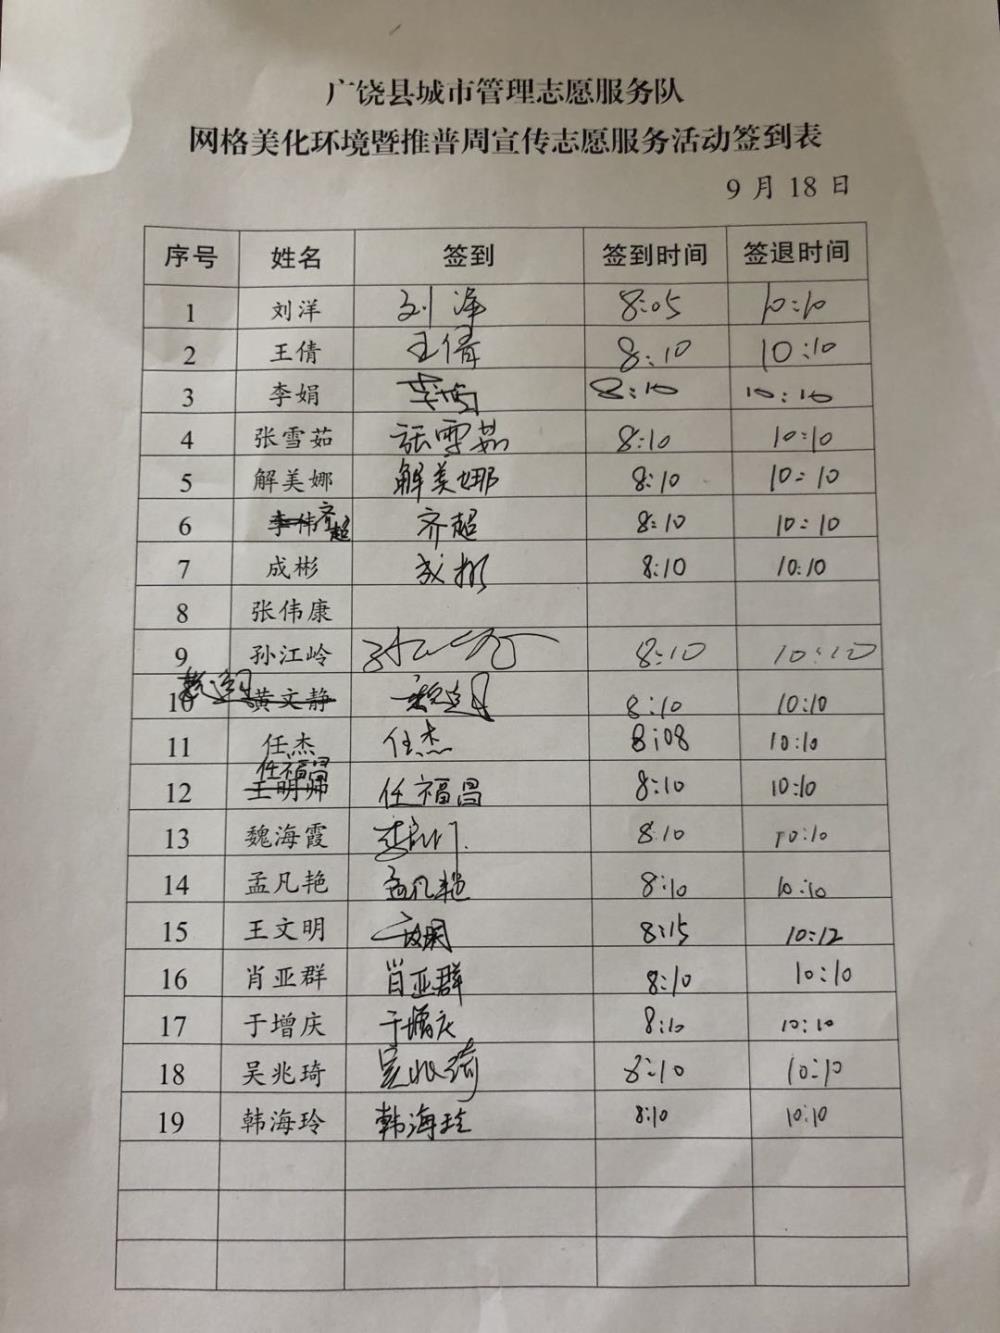 广饶县城市管理志愿服务队
网格美化环境暨推普周宣传志愿服务活动签到表
9 月 18 日
序号 姓名 签到 签到时间 签退时间
1 刘洋 刘洋 8:05 10:10
2 王倩 王倩 8:10 10:10
3 李娟 李娟 8:10 10:10
4 张雪茹 张雪茹 8:10 10:10
5 解美娜 解美娜 8:10 10:10
6 李伟 齐超 齐超 8:10 10:10
7 成彬 成彬 8:10 10:10
8 张伟康
9 孙江岭 孙江岭 8:10 10:10
10 黄文静 8:10 10:10
11 任杰 任杰 8:08 10:10
任福昌
12 王明帅 任福昌 8:10 10:10
13 魏海霞 8:10 10:10
14 孟凡艳 孟凡艳 8:10 10:10
15 王文明 王文明 8:15 10:12
16 肖亚群 肖亚群 8:10 10:10
17 于增庆 于增庆 8:10 10:10
18 吴兆琦 吴兆琦 8:10 10:10
19 韩海玲 韩海玲 8:10 10:10